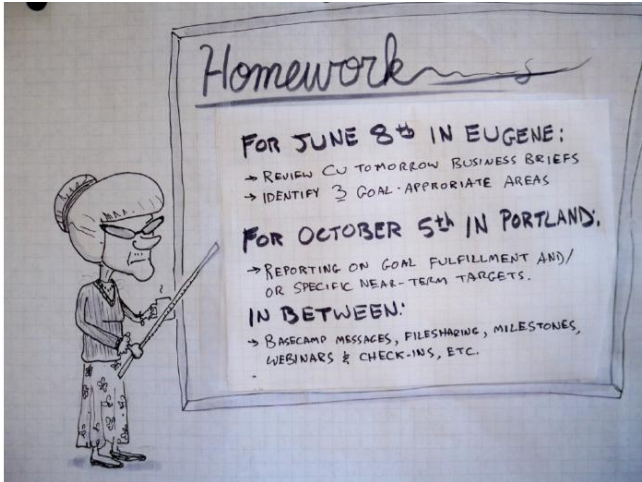 Homework
FOR JUNE 8th IN EUGENE:
→ REVIEW CU TOMORROW BUSINESS BRIEFS
→ IDENTIFY 3 GOAL-APPRORIATE AREAS
FOR OCTOBER 5th IN PORTLAND:
→ REPORTING ON GOAL FULFILLMENT AND/
OR SPECIFIC NEAR-TERM TARGETS.
IN BETWEEN:
→ BASECAMP MESSAGES, FILESHARING, MILESTONES,
WEBINARS & CHECK-INS, ETC.